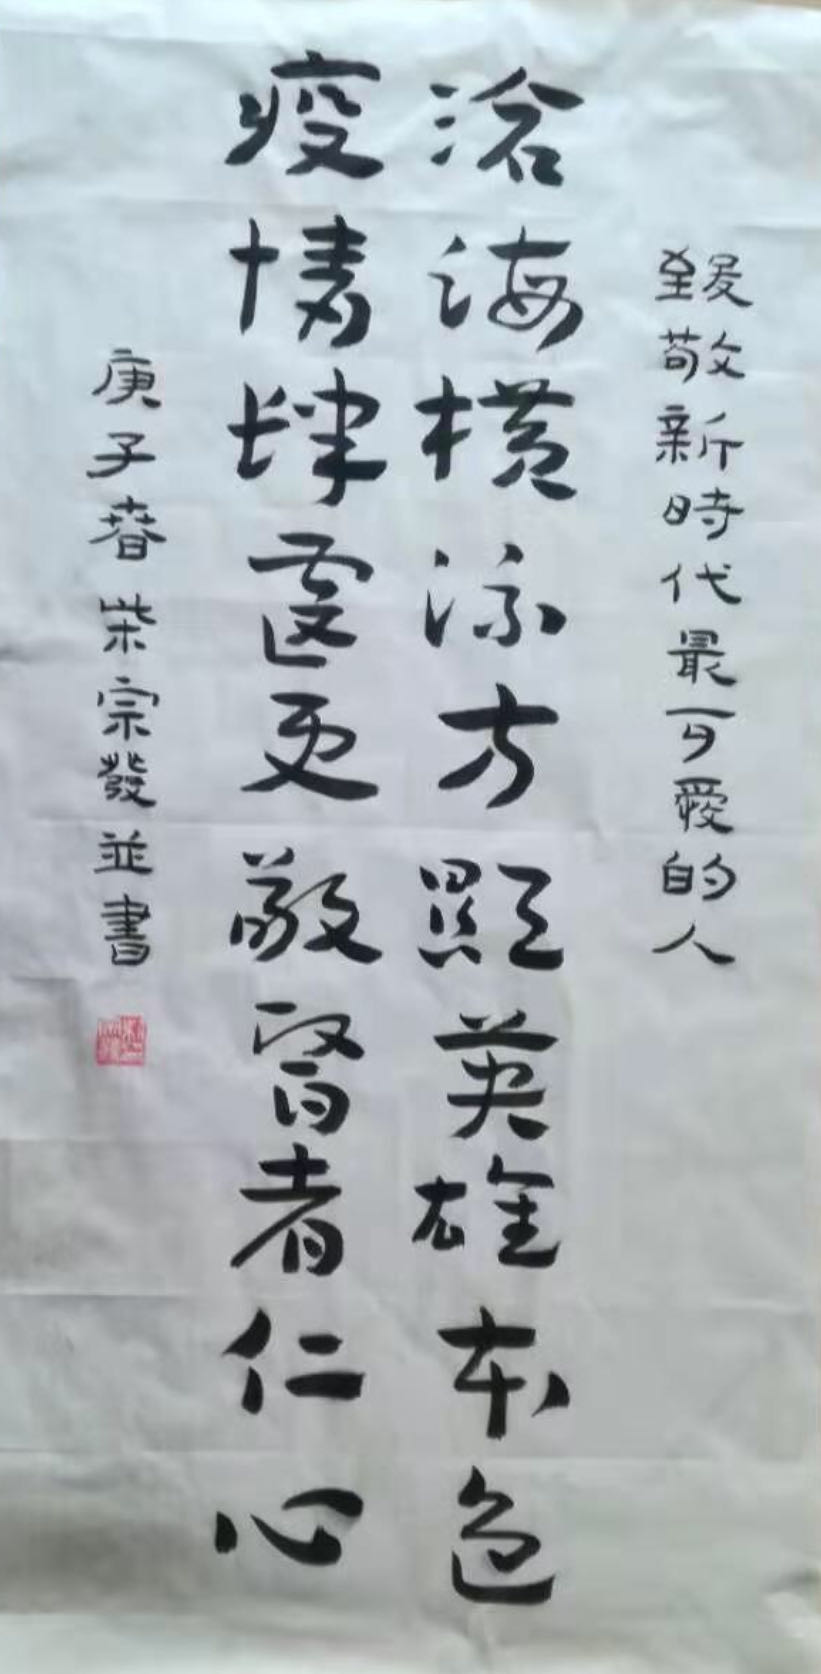 致敬新時代最可愛的人
滄海横流方顯英雄本色
疫情肆虐更敬醫者仁心
庚子春柴宗發並書